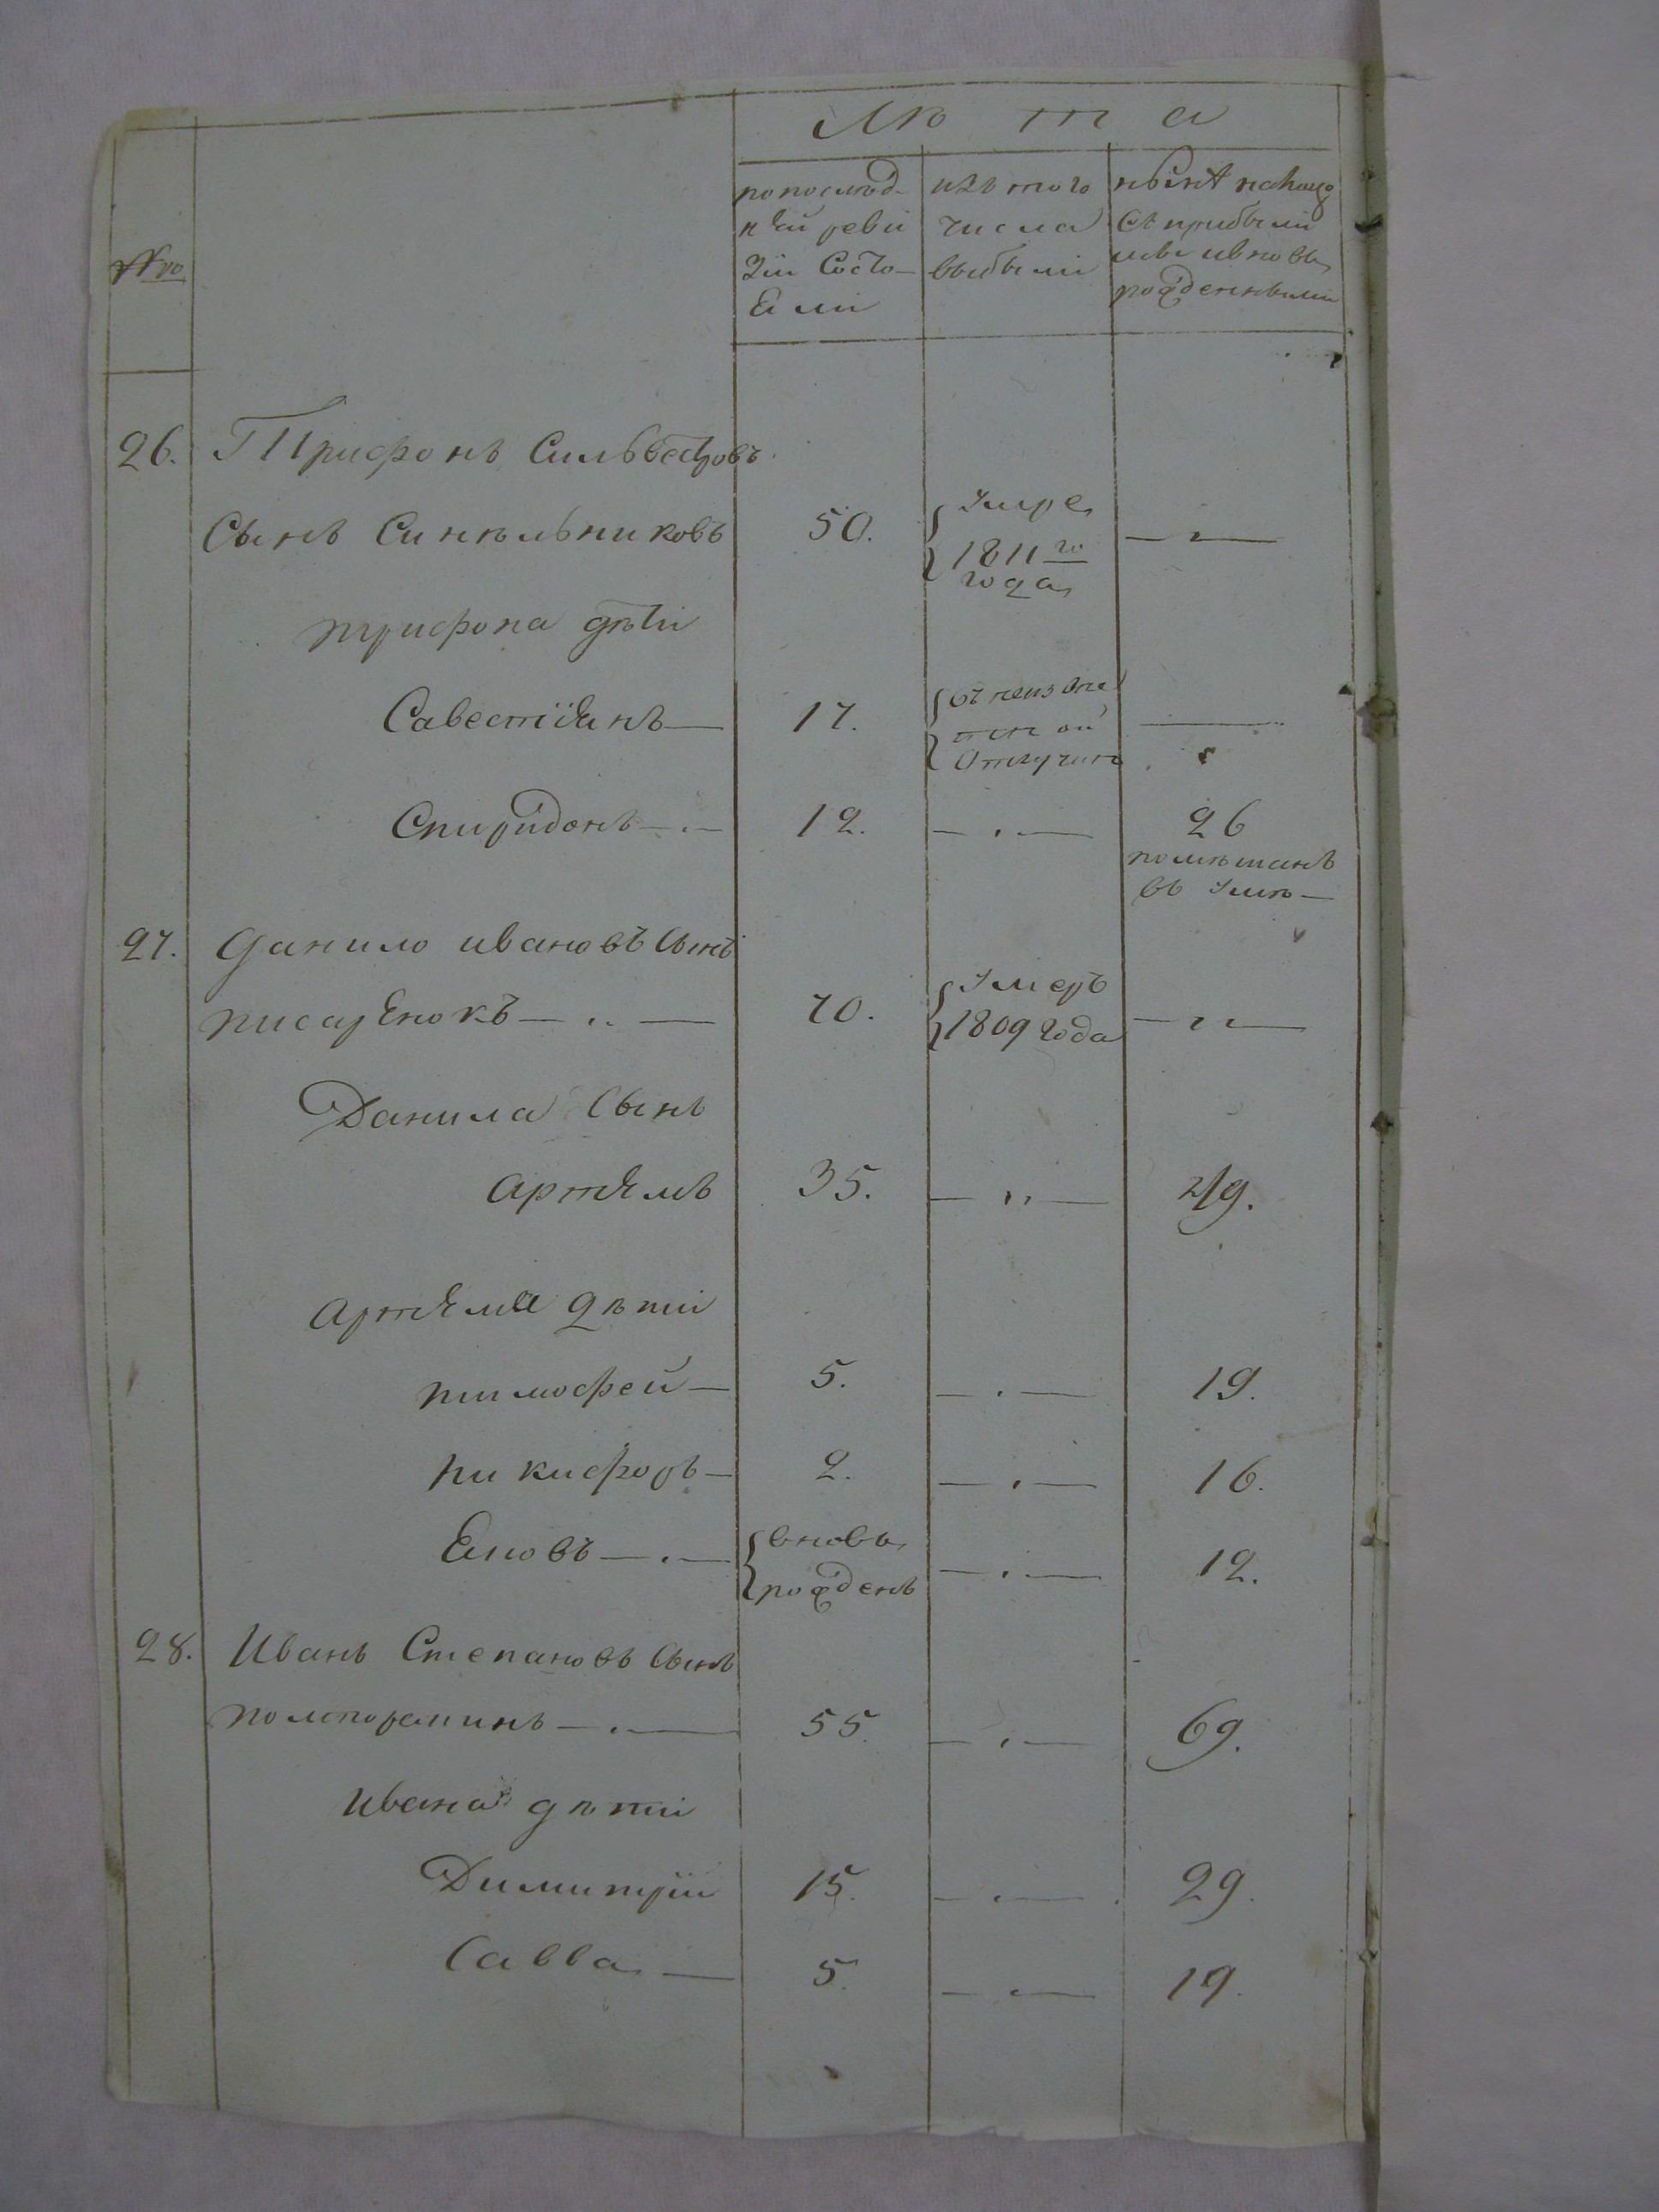 Лѣта
№ро
по послѣд-
ней реви
зіи состо-
яли
изъ того
числа
выбыли
нынѣ находя
ся прибыли
ми и вновь
рожденными
26. Трифонъ Сильвестровъ
Сынъ Синѣльниковъ 50. Умре 1811го года
трифона дѣти
Савестіянъ 17. отлучки
Спиридонъ 12. 26
помѣшанъ
въ умѣ
27. Данило ивановъ Сынъ
писаренокъ 70. Умеръ 1809 года
Данила Сынъ
артемъ 35. 49.
артема дѣти
тимофей 5. 19.
никифоръ 2. 16.
вновь рожденъ 12.
28. Иванъ Степановъ Сынъ
55. 69.
Ивана дѣти
Димитрій 15. 29.
Савва 5. 19.